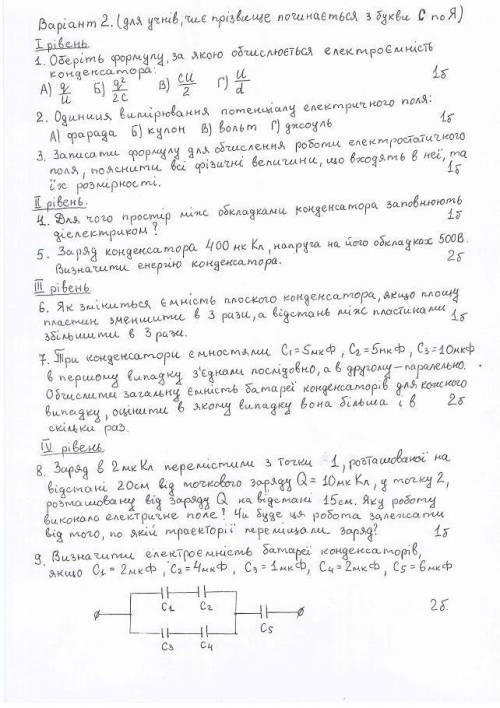 Варіант 2. (для учнів, чиє прізвище починається з букви С по Я)
I рівень.
1. Оберіть формулу, за якою обчислюється електроємність
конденсатора:
А) q/U Б) q²/2C В) CU/2 Г) U/d 1б
2. Одиниця вимірювання потенціалу електричного поля:
А) фарада Б) кулон В) вольт Г) джоуль 1б
3. Записати формулу для обчислення роботи електростатичного
поля, пояснити всі фізичні величини, що входять в неї, та
їх розмірності. 1б
II рівень.
4. Для чого простір між обкладками конденсатора заповнюють
діелектриком? 1б
5. Заряд конденсатора 400 мкКл, напруга на його обкладках 500В.
Визначити енергію конденсатора. 2б
III рівень
6. Як зміниться ємність плоского конденсатора, якщо площу
пластин зменшити в 3 рази, а відстань між пластинами
збільшити в 3 рази. 1б
7. Три конденсатори ємностями C₁=5мкФ, C₂=5пкФ, C₃=10мкф
в першому випадку з'єднали послідовно, а в другому – паралельно.
Обчислити загальну ємність батареї конденсаторів для кожного
випадку, оцінити в якому випадку вона більша і в
скільки раз. 2б
IV рівень.
8. Заряд в 2мкКл перемістили з точки 1, розташованої на
відстані 20см від точкового заряду Q = 10мкКл, у точку 2,
розташовану від заряду Q на відстані 15см. Яку роботу
виконало електричне поле? Чи буде ця робота залежати
від того, по якій траєкторії переміщали заряд? 1б
9. Визначити електроємність батареї конденсаторів,
якщо C₁ = 2мкФ, C₂=4мкФ, C₃ = 1мкФ, C₄=2мкФ, C₅ = 6мкФ
C₁ C₂
C₅ 2б.
C₃ C₄